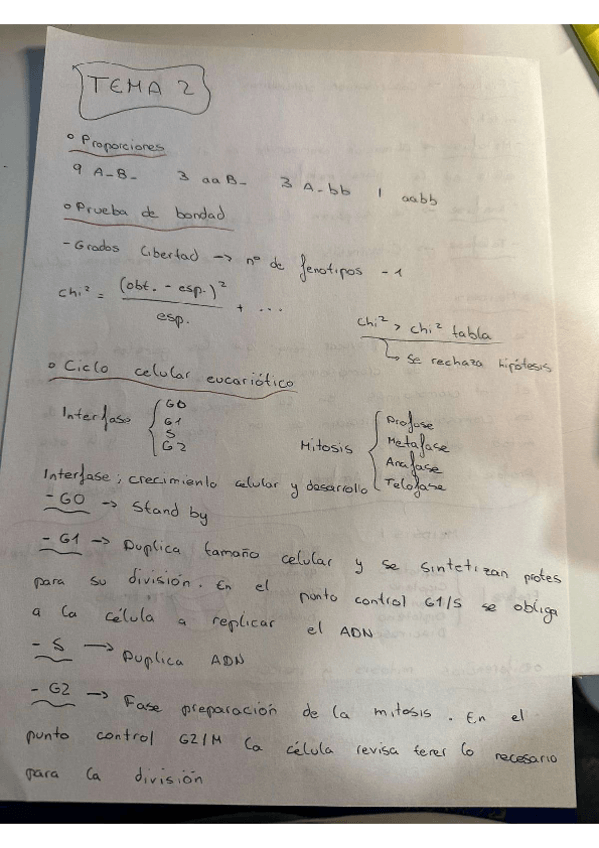 TEMA 2
o Proporciones
9 A-B- 3 aaB- 3 A-bb 1 aabb
o Prueba de bondad
- Grados libertad -> nº de fenotipos - 1
chi² = (obt. - esp.)² / esp. + ...
chi² > chi² tabla
↳ Se rechaza hipótesis
o Ciclo celular eucariótico
Interfase { G0
G1
S
G2
Mitosis { Profase
Metafase
Anafase
Telofase
Interfase: crecimiento celular y desarrollo
- G0 -> Stand by
- G1 -> Duplica tamaño celular y se sintetizan protes
para su división. En el punto control G1/S se obliga
a la célula a replicar el ADN
- S -> Duplica ADN
- G2 -> Fase preparación de la mitosis. En el
punto control G2/M la célula revisa tener lo necesario
para la división